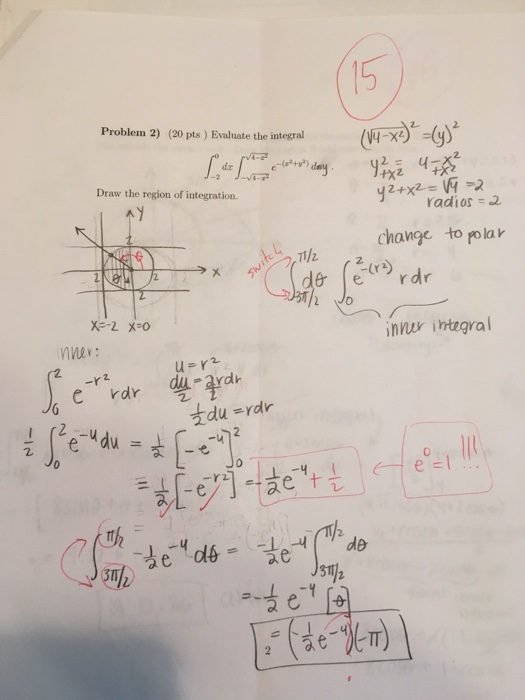 15
Problem 2) (20 pts ) Evaluate the integral
∫_{-2}^{0} dx ∫_{-√4-x²}^{√4-x²} e^{-(x²+y²)} dxy.
(√4-x²)² = (y)²
y² = 4-x²
+x² +x²
y²+x² = √4 = 2
radios = 2
Draw the region of integration.
y
2
x
2 θ 2
2
x=-2 x=0
change to polar
switch
∫_{3π/2}^{π/2} dθ ∫_{0}^{2} e^{-(r²)} r dr
inner integral
inner:
∫_{0}^{2} e^{-r²} rdr
u = r²
du/2 = 2rdr/2
½ du = rdr
½ ∫_{0}^{2} e^{-u} du = ½ [-e^{-u}]_{0}^{2}
= ½ [-e^{-r²}] = -½e^{-4} + ½
e⁰ = 1 !!!
∫_{3π/2}^{π/2} -½e^{-4} dθ = -½e^{-4} ∫_{3π/2}^{π/2} dθ
= -½ e^{-4} [θ]
2 = (-½e^{-4})(-π)